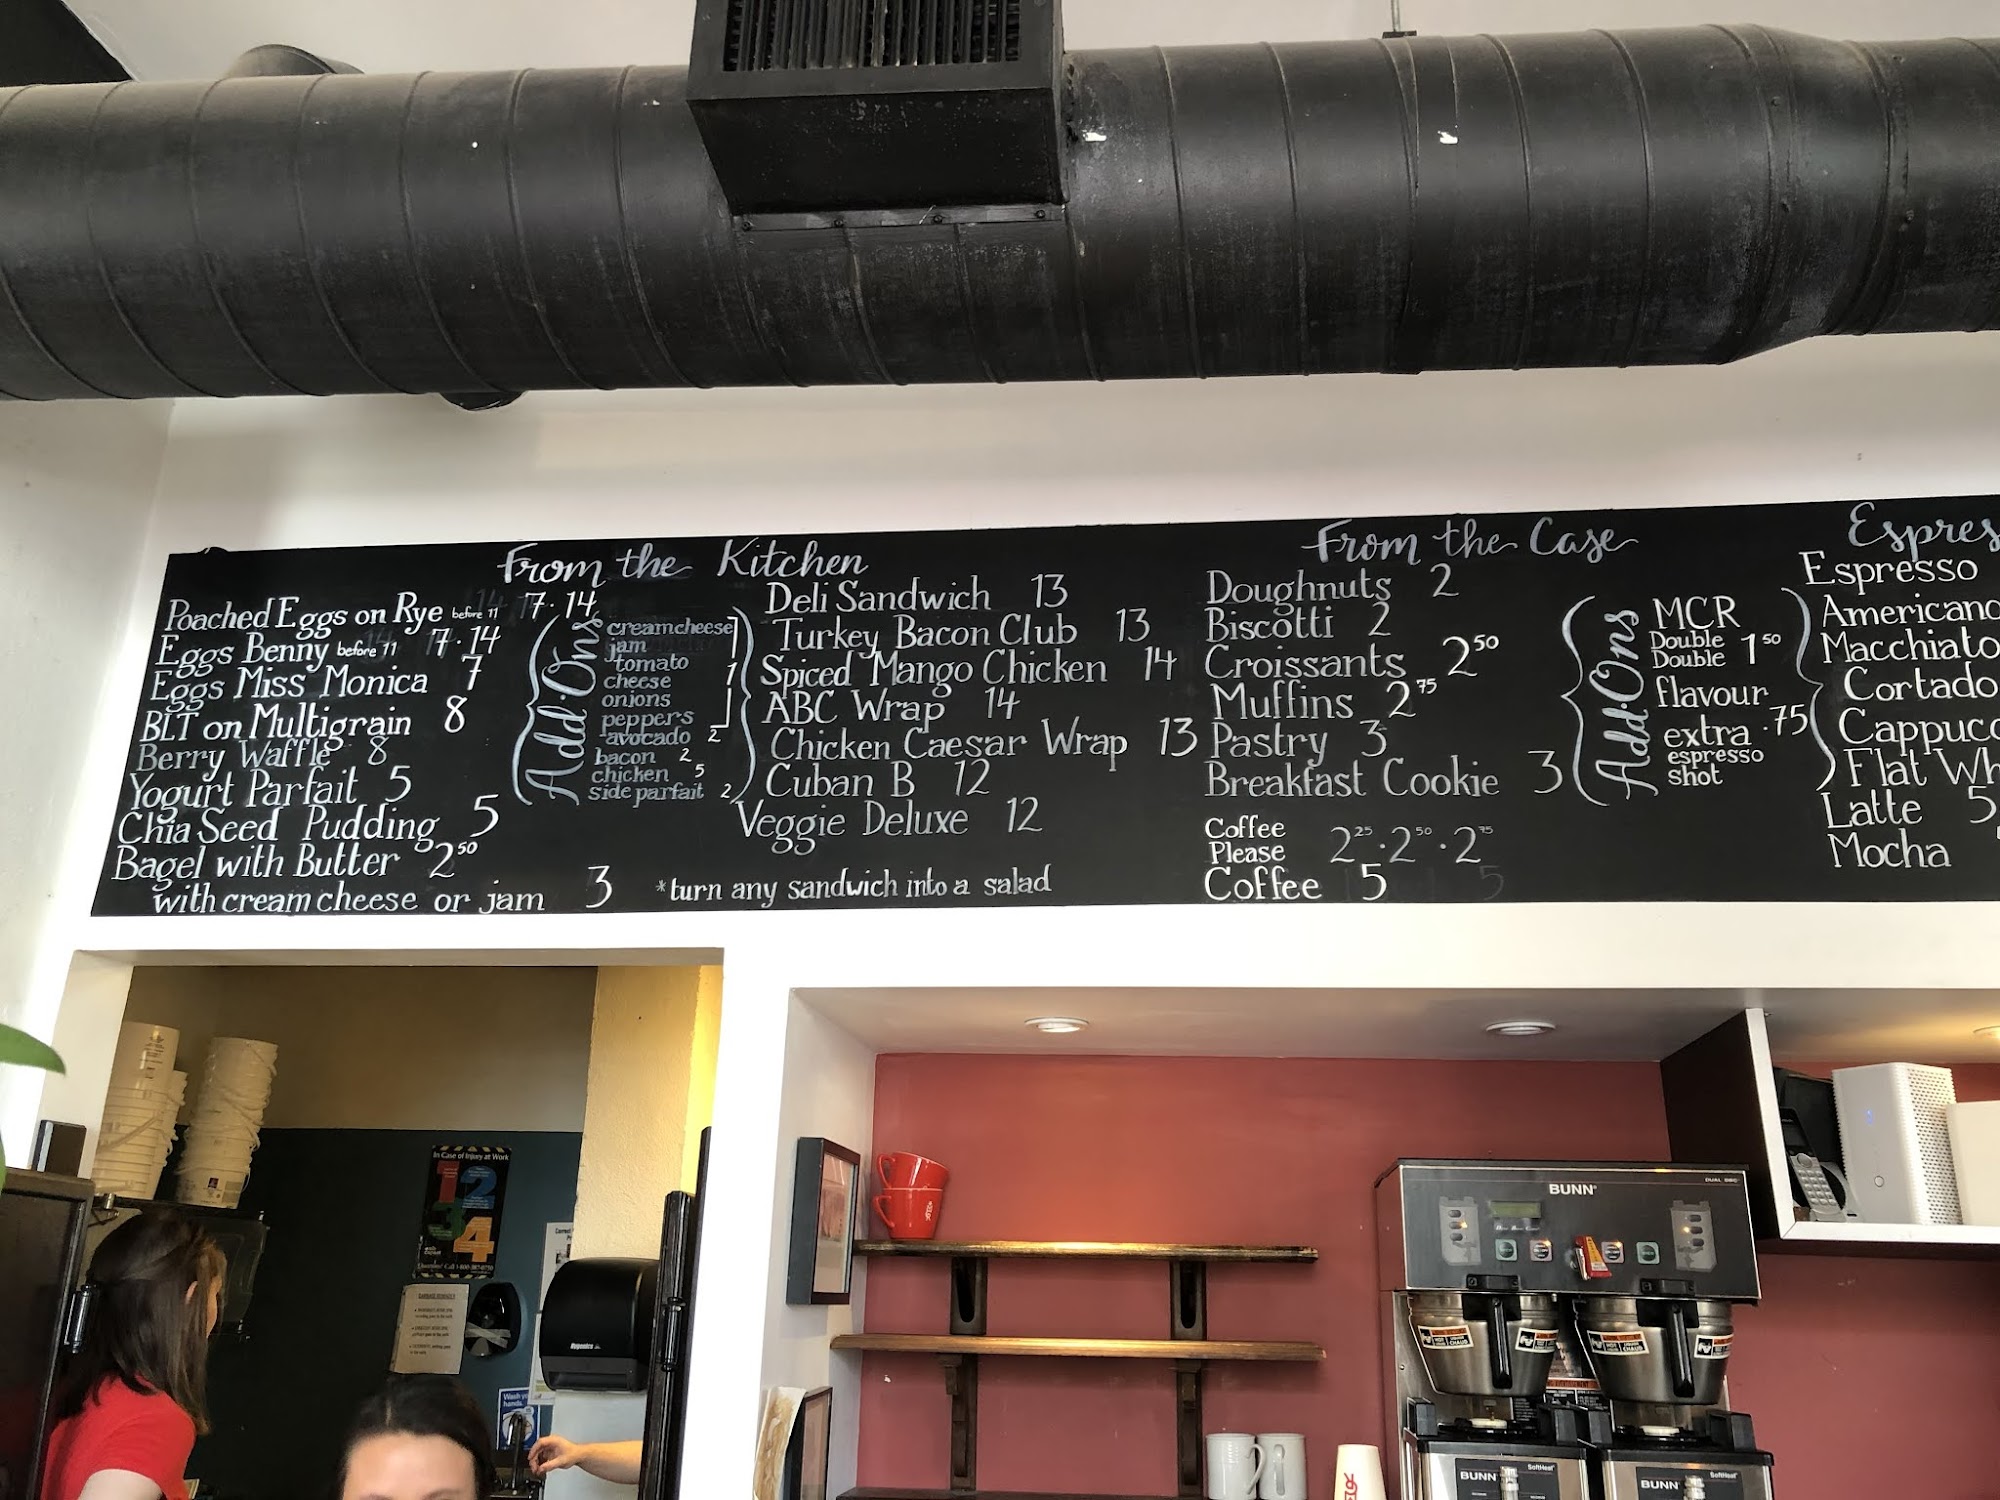 From the Kitchen
Poached Eggs on Rye before 11 7·14
Eggs Benny before 11 7·14
Eggs Miss Monica 7
BLT on Multigrain 8
Berry Waffle 8
Yogurt Parfait 5
Chia Seed Pudding 5
Bagel with Butter 2⁵⁰
with cream cheese or jam 3
Add-Ons
creamcheese
jam
tomato
cheese 1
onions
peppers
avocado 2
bacon 2
chicken 5
side parfait 2
Deli Sandwich 13
Turkey Bacon Club 13
Spiced Mango Chicken 14
ABC Wrap 14
Chicken Caesar Wrap 13
Cuban B 12
Veggie Deluxe 12
*turn any sandwich into a salad
From the Case
Doughnuts 2
Biscotti 2
Croissants 2⁵⁰
Muffins 2⁷⁵
Pastry 3
Breakfast Cookie 3
Coffee 2²⁵·2⁵⁰·2⁷⁵
Please
Coffee 5
Add-Ons
MCR
Double
Double 1⁵⁰
flavour
extra .75
espresso
shot
Espres
Espresso
Americano
Macchiato
Cortado
Cappucc
Flat Wh
Latte 5
Mocha
In Case of Injury at Work
1 2
3
4
Wash yo
hands.
BUNN
BUNN
SoftHeat
BUNN
SoftHeat